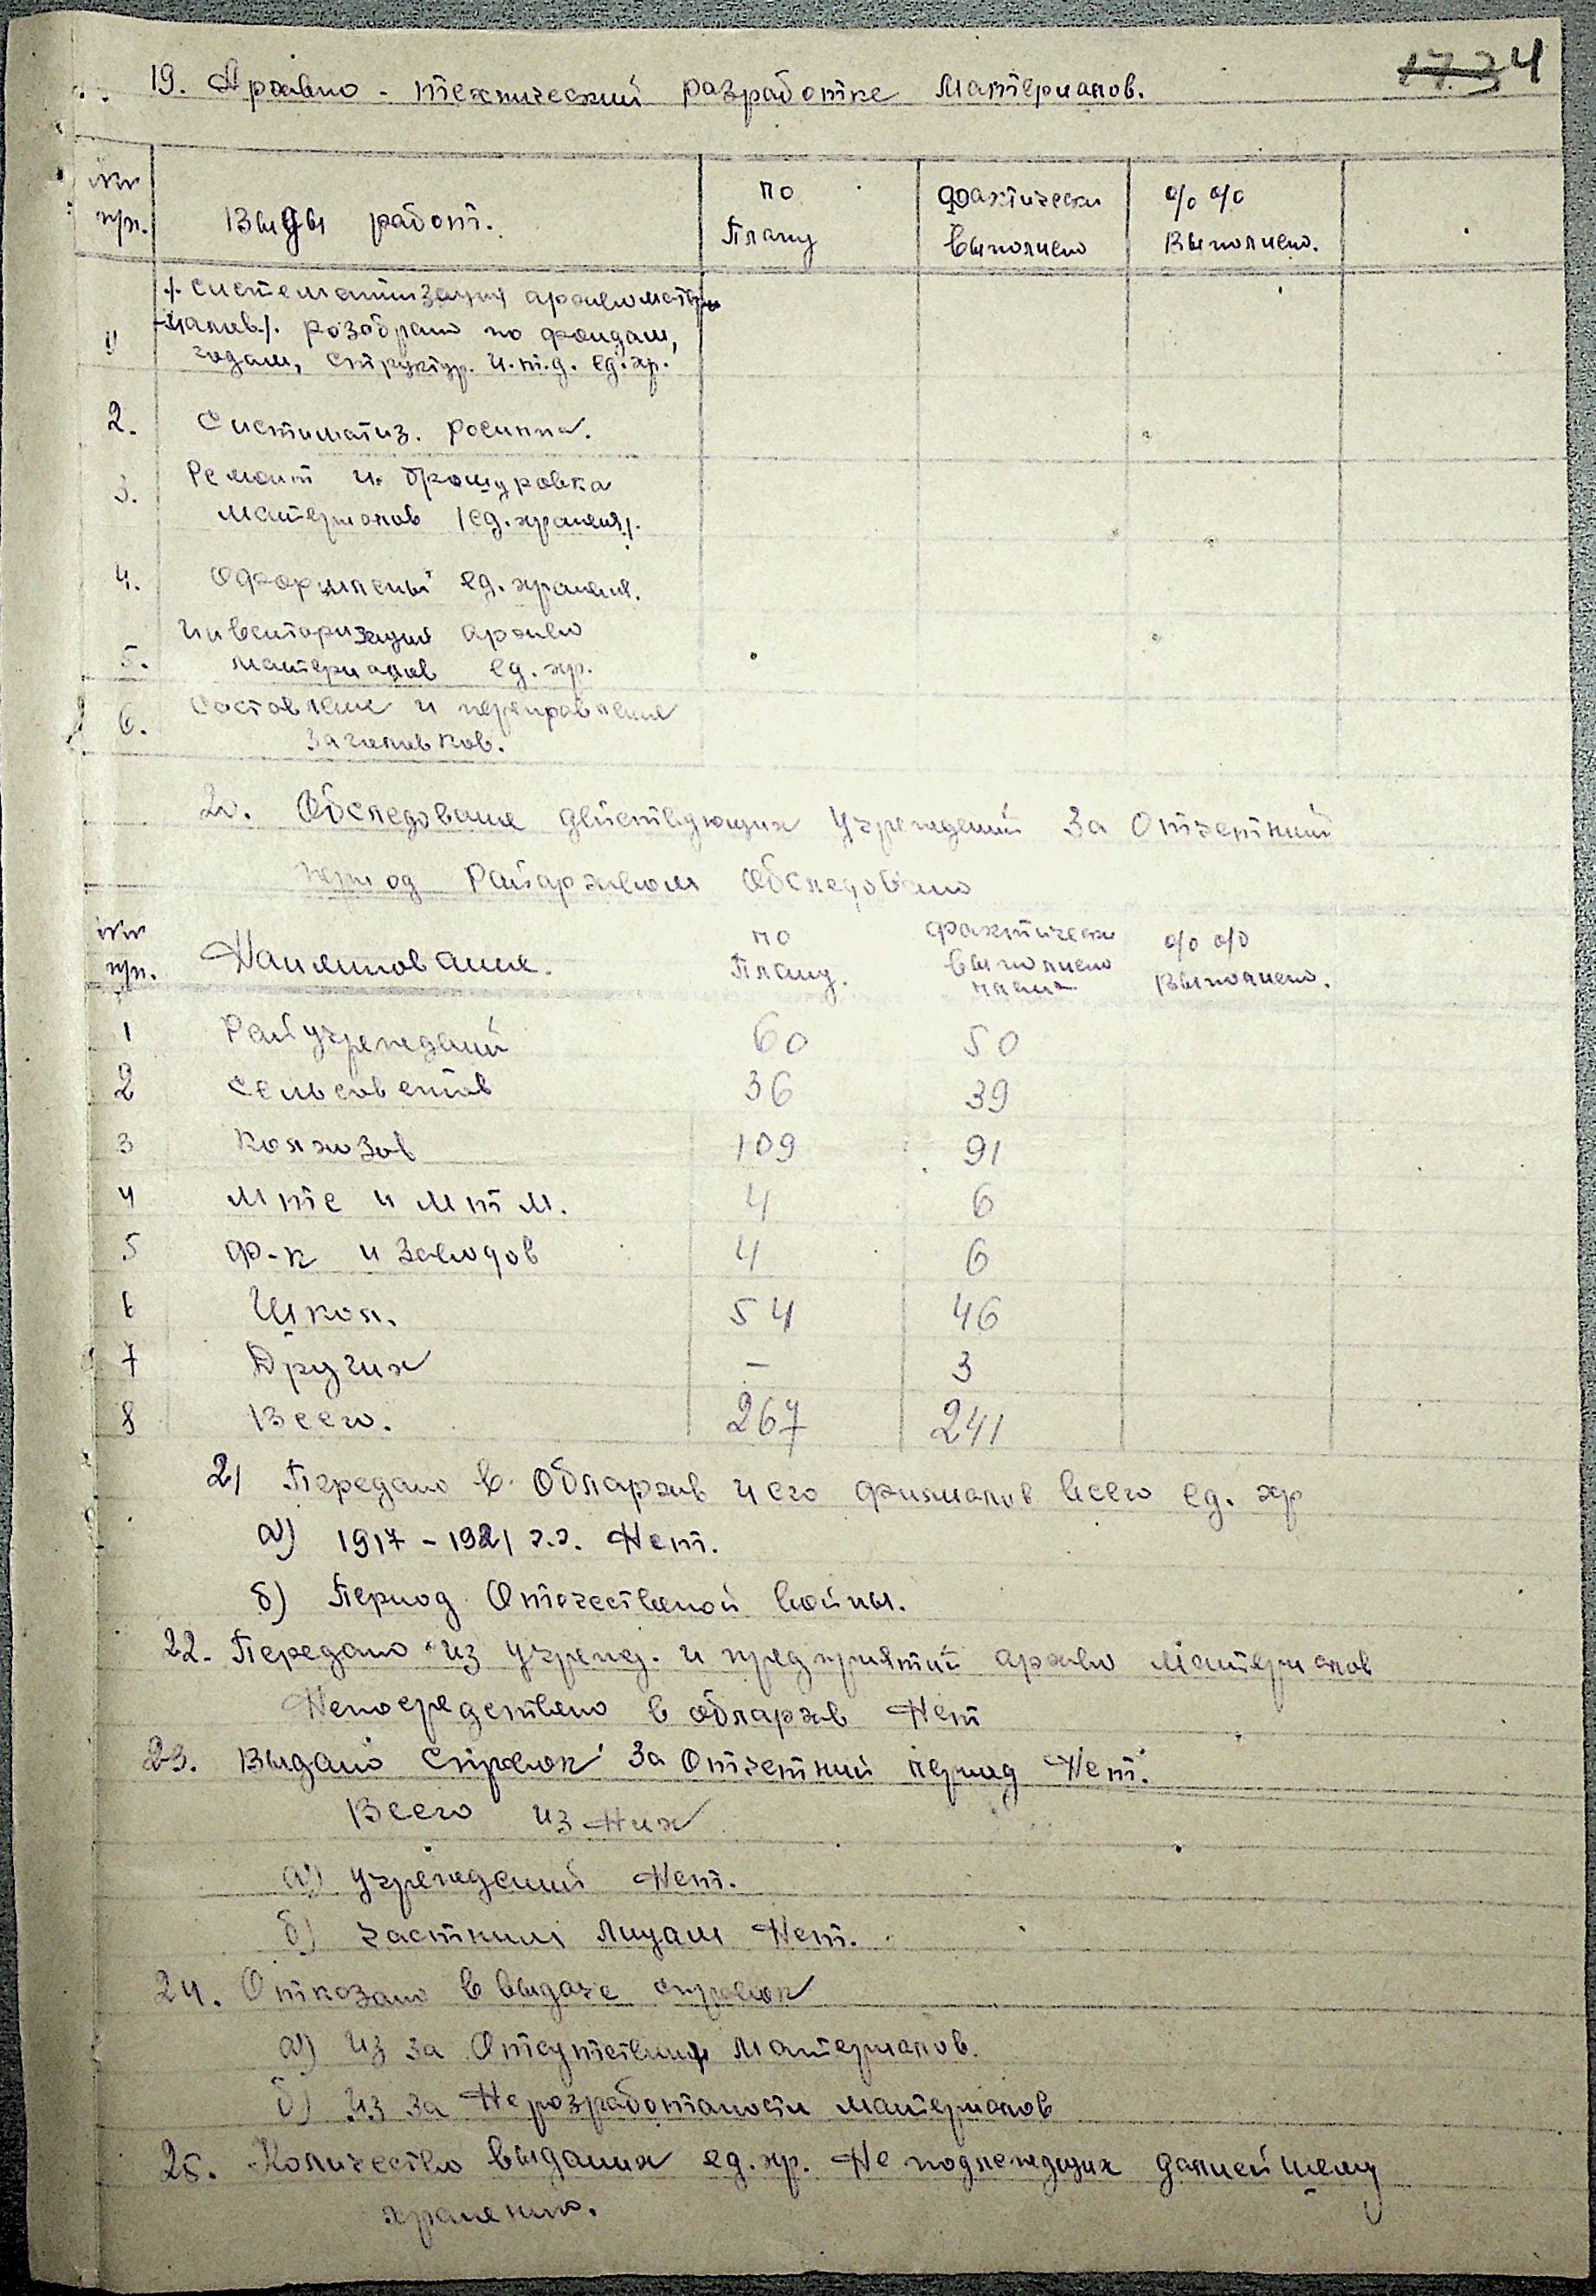 17. 3 4
19. Архивно - технический разработке Материалов.
№№ Виды работ. по фактически % %
п/п. Плану Выполнено Выполнено.
/. Систематизация архивоматери
1 -иалов./. разобрано по фондам,
годам, структур. и.т.д. ед.хр.
2. Систиматиз. россыпи.
3. Ремонт и брошуровка
материалов /ед.хранения/.
4. Оформлений ед.хранения.
Инвентаризация архиво
5. материалов ед.хр.
6. Составление и переправление
Заголовков.
20. Обследование действующих Учреждений За Отчетний
период Райархивом Обследовано
№№ Наименование. по фактически % %
п/п. Плану. Выполнено Выполнено.
плана
1 Райучреждений 60 50
2 Сельсоветов 36 39
3 Колхозов 109 91
4 МТС и МТМ. 4 6
5 Ф-к и Заводов 4 6
6 Школ. 54 46
7 Других — 3
8 Всего. 267 241
21 Передано в Облархив и его филиалов всего ед. хр
а) 1917 - 1921 г.г. Нет.
б) Период Отечественой войны.
22. Передано из учрежд. и предприятий архиво материалов
Непосредствено в облархив Нет
23. Выдано Справок За Отчетний период Нет.
Всего из них
а) учреждений Нет.
б) частним лицам Нет.
24. Отказано в выдаче справок
а) Из за Отсутствиия материалов.
б) Из за Неразработаности материалов
25. Количество выданих ед.хр. Не подлежащих далнейшему
хранению.